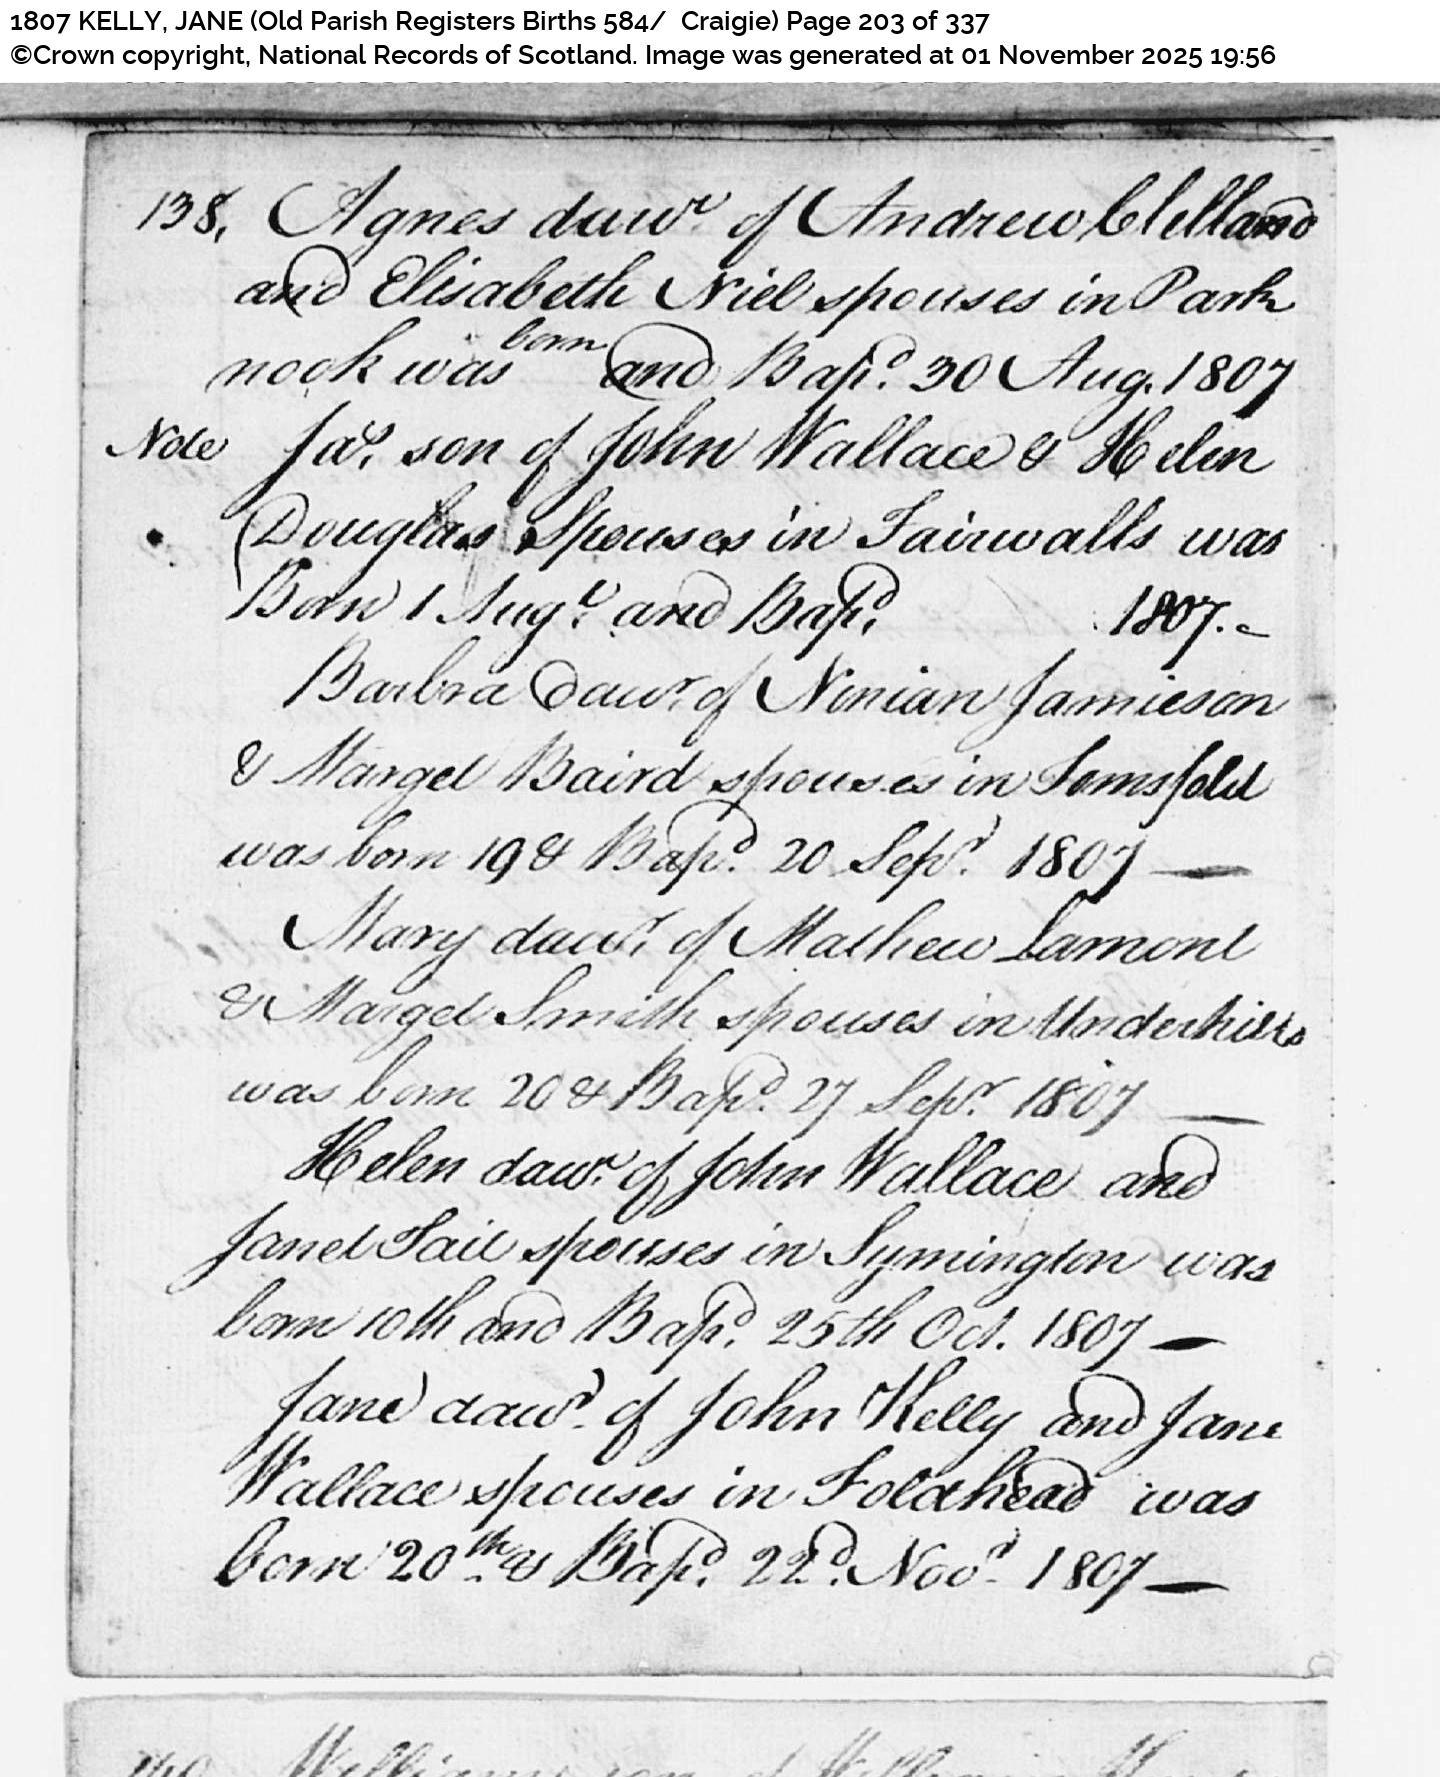 1807 KELLY, JANE (Old Parish Registers Births 584/ Craigie) Page 203 of 337
©Crown copyright, National Records of Scotland. Image was generated at 01 November 2025 19:56
138, Agnes dawr. of Andrew Clelland
and Elisabeth Niel spouses in Park
nook was born and Bapd. 30 Aug. 1807
Note Jas. son of John Wallace & Helen
Douglas Spouses in Fairwalls was
Born 1 Augt. and Bapd. 1807.
Barbra dawr. of Ninian Jamieson
& Marget Baird spouses in Tomsfold
was born 19 & Bapd. 20 Sepr. 1807 —
Mary dawr. of Mathew Lamont
& Marget Smith spouses in Underhills
was born 20 & Bapd. 27 Sepr. 1807 —
Helen dawr. of John Wallace and
Janet Tait spouses in Symington was
born 10th and Bapd. 25th Oct. 1807 —
Jane dawr. of John Kelly and Jane
Wallace spouses in Foldhead was
born 20th. & Bapd. 22d. Novr. 1807 —
140 William son of William